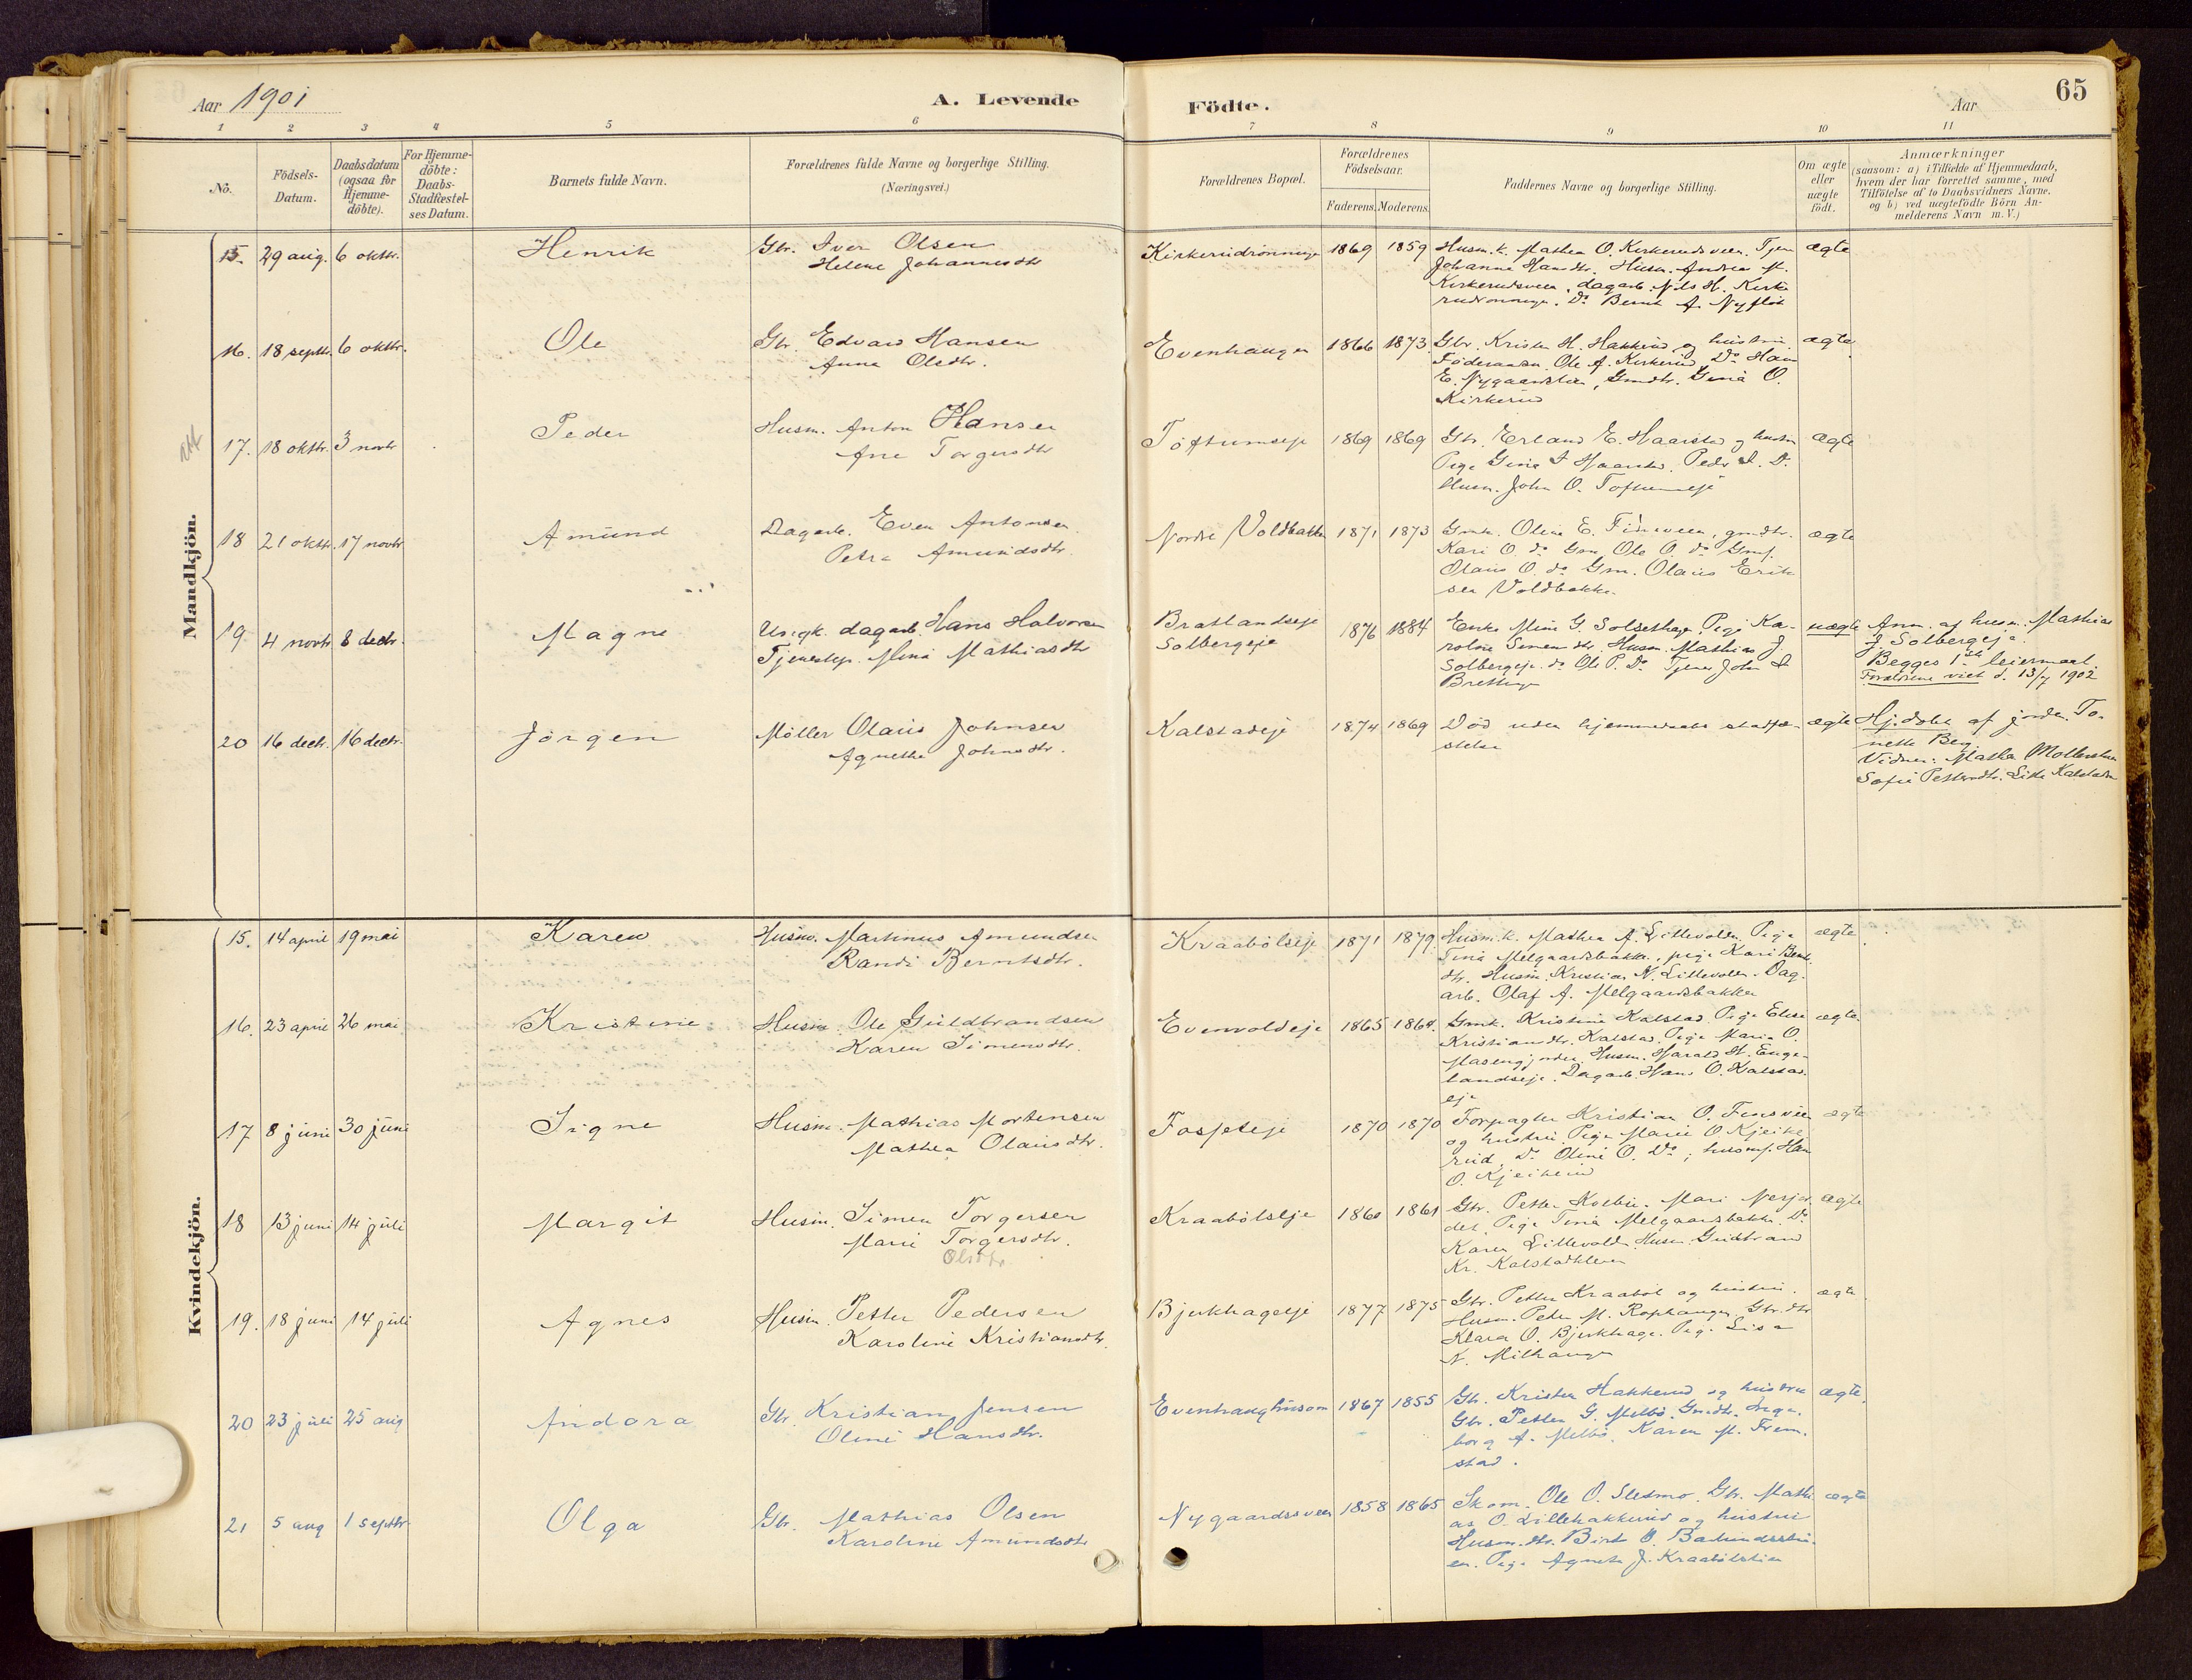 Aar 1901
A. Levende
Födte.
Aar
65
1 2 3 4 5 6 7 8 9 10 11
No.
Födsels-
Datum.
Daabsdatum
(ogsaa for
Hjemme-
döbte).
For Hjemme-
döbte:
Daabs-
Stadfæstel-
ses Datum.
Barnets fulde Navn.
Forældrenes fulde Navne og borgerlige Stilling.
(Næringsvei.)
Forældrenes Bopæl.
Forældrenes
Födselsaar.
Faderens. Moderens.
Faddernes Navne og borgerlige Stilling.
Om ægte
eller
uægte
födt.
Anmærkninger
(saasom: a) i Tilfælde af Hjemmedaab,
hvem der har forrettet samme, med
Tilföielse af to Daabsvidners Navne.
og b) ved uægtefödte Börn An-
melderens Navn m. V.)
Mandkjön.
15. 29 aug. 6 oktbr. Henrik
Gbr. Iver Olsen
Helene Johannesdtr
Kirkerudrönninge 1869 1859
Husm.k. Mathea O. Kirkerudsveen. Tjen
Johanne Hansdtr. Husm. Andreas M.
Kirkerudsveen, dagarb. Nils H. Kirke
rudrönningen. Do Bernt A. Nyflöt
ægte
16. 18 septbr. 6 oktbr. Ole
Gbr. Edvard Hansen
Anna Olsdtr.
Evenhaugen 1866 1873.
Gbr. Kristen H. Hakkerud og hustru.
Föderaadsm. Ole A. Kirkerud, Do Hans
E. Nygaardslien, Gmdtr. Gina O.
Kirkerud
ægte
17. 18 oktbr. 3 novbr Peder
Husm. Anton Hansen
Ane Torgersdtr
Toftumseje 1869 1869
Gbr. Erland E. Haarstad og hustru
Pige Gina I Haarstad. Peder I. Do.
Husm. John O. Toftumseje
ægte
18 21 oktbr. 17 novbr Amund
Dagarb. Even Antonsen
Petra Amundsdtr.
Nordre Voldbakken 1871 1873
Gmk. Oline E. Finsveen, gmdtr.
Kari O. do Gm. Ole O. do Gms.
Olaus O. do Gm. Olaus Erik
sen Voldbakke.
ægte
19 4 novbr. 8 decbr. Magne
Ungk. dagarb. Hans Halvorsen
Tjenestep. Mina Mathiasdtr
Bratlandseje
Solbergseje
1876 1884
Enke Mina G. Solsethage, Pige Ka-
roline Simensdtr. Husm. Mathias J.
Solbergeje. do Ole P. Do Tjener John I
Brettinge
uægte
Anm. af husm. Mathias
J. Solbergeje.
Begges 1ste leiermaal.
Forældrene viet d. 13/7 1902
20 16 decbr. 16 decbr. Jörgen
Möller Olaus Johnsen
Agnethe Johnsdtr.
Kalstadeje 1874 1869
Död uden hjemmedaabs stadfæ-
stelse
ægte
Hj. döbt af jordm. To-
nette Berg.
Vidner: Mathea Mollerstuen
Sofie Pettersdtr. Lille Kalstad
Kvindekjön.
15. 14 april 19 mai Karen
Husm. Martinus Amundsen
Randi Berntsdtr.
Kraabölseje 1871 1879.
Husm.k. Mathea A. Lillevolden. Pige
Tina Melgaardsbakke, pige Kari Bernt
dtr. Husm. Kristian N. Lillevolden. Dag-
arb. Olaf A. Melgaardsbakken
ægte
16. 23 april 26 mai Kristine
Husm. Ole Guldbrandsen
Karen Simensdtr.
Evenvoldeje 1865 1864.
Gmk. Kristine Kalstad Pige Elise
Kristiansdtr. Kalstad. Pige Maria O.
Masengjordet. Husm. Harald H. Enge-
landseje. Dagarb. Hans O. Kalstad-
eje
ægte.
17 8 juni 30 juni Signe
Husm. Mathias Mortensen
Mathea Olausdtr.
Fosseseje 1870 1870
Forpagter Kristian O. Finsveen
og hustru. Pige Marie O Kjeike
rud, Do Oline O. Do; husms. Hans
O. Kjeikerud
ægte
18 13 juni 14 juli Margit
Husm. Simen Torgersen
Mari Torgersdtr.
Olsdtr.
Kraabölseje 1860 1861
Gbr. Petter Kolbu. Mari Nerjor
det. Pige Tina Melgaardsbakke. Do
Karen Lillevold. Husm. Gudbrand
Kr. Kalstadkleven
ægte
19. 18 juni 14 juli Agnes
Husm. Petter Pedersen
Karoline Kristiansdtr.
Bjerkhageseje 1877 1875
Gbr. Petter Kraaböl og hustru.
Husm. Peter M. Rophaugen, Gbr.dtr
Klara O. Bjerkhage. Pige Lisa
N. Milhaugen
ægte
20 23 juli 25 aug Andora
Gbr. Kristian Jensen
Oline Hansdtr.
Evenhaughusom 1867 1855
Gbr. Kristen Hakkerud og hustru
Gbr. Petter G. Melbö. Gmdtr. Inge-
borg A. Melbö. Karen M. Frem.
stad.
ægte
21 5 aug 1 septbr. Olga
Gbr. Mathias Olsen
Karoline Amundsdtr
Nygaardssveen 1858 1865
Skom. Ole O. Slesmo. Gbr. Mathi
as O. Lillehakkerud og hustru
Husm.dtr. Birt O. Bakkerudstu-
en. Pige Agnete J. Kraabölslien
ægte